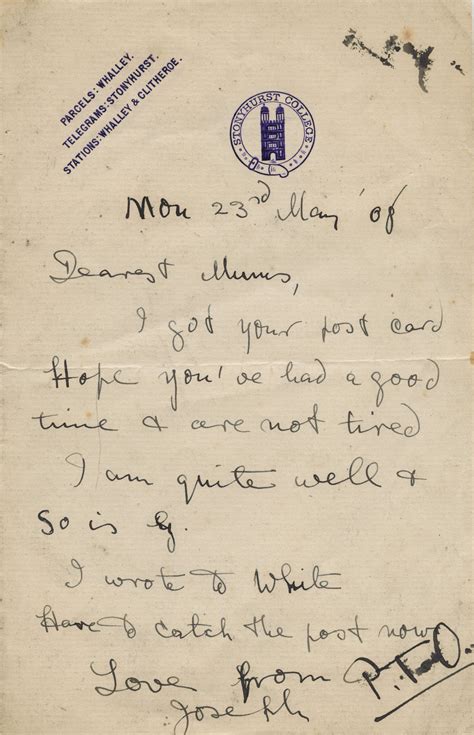 PARCELS: WHALLEY.
TELEGRAMS: STONYHURST.
STATIONS: WHALLEY & CLITHEROE.
STONYHURST COLLEGE
Mon 23rd May '08
Dearest Mums,
I got your post card
Hope you've had a good
time & are not tired
I am quite well &
So is G.
I wrote to White
Have to catch the post now
Love from
Joseph
P.T.O.